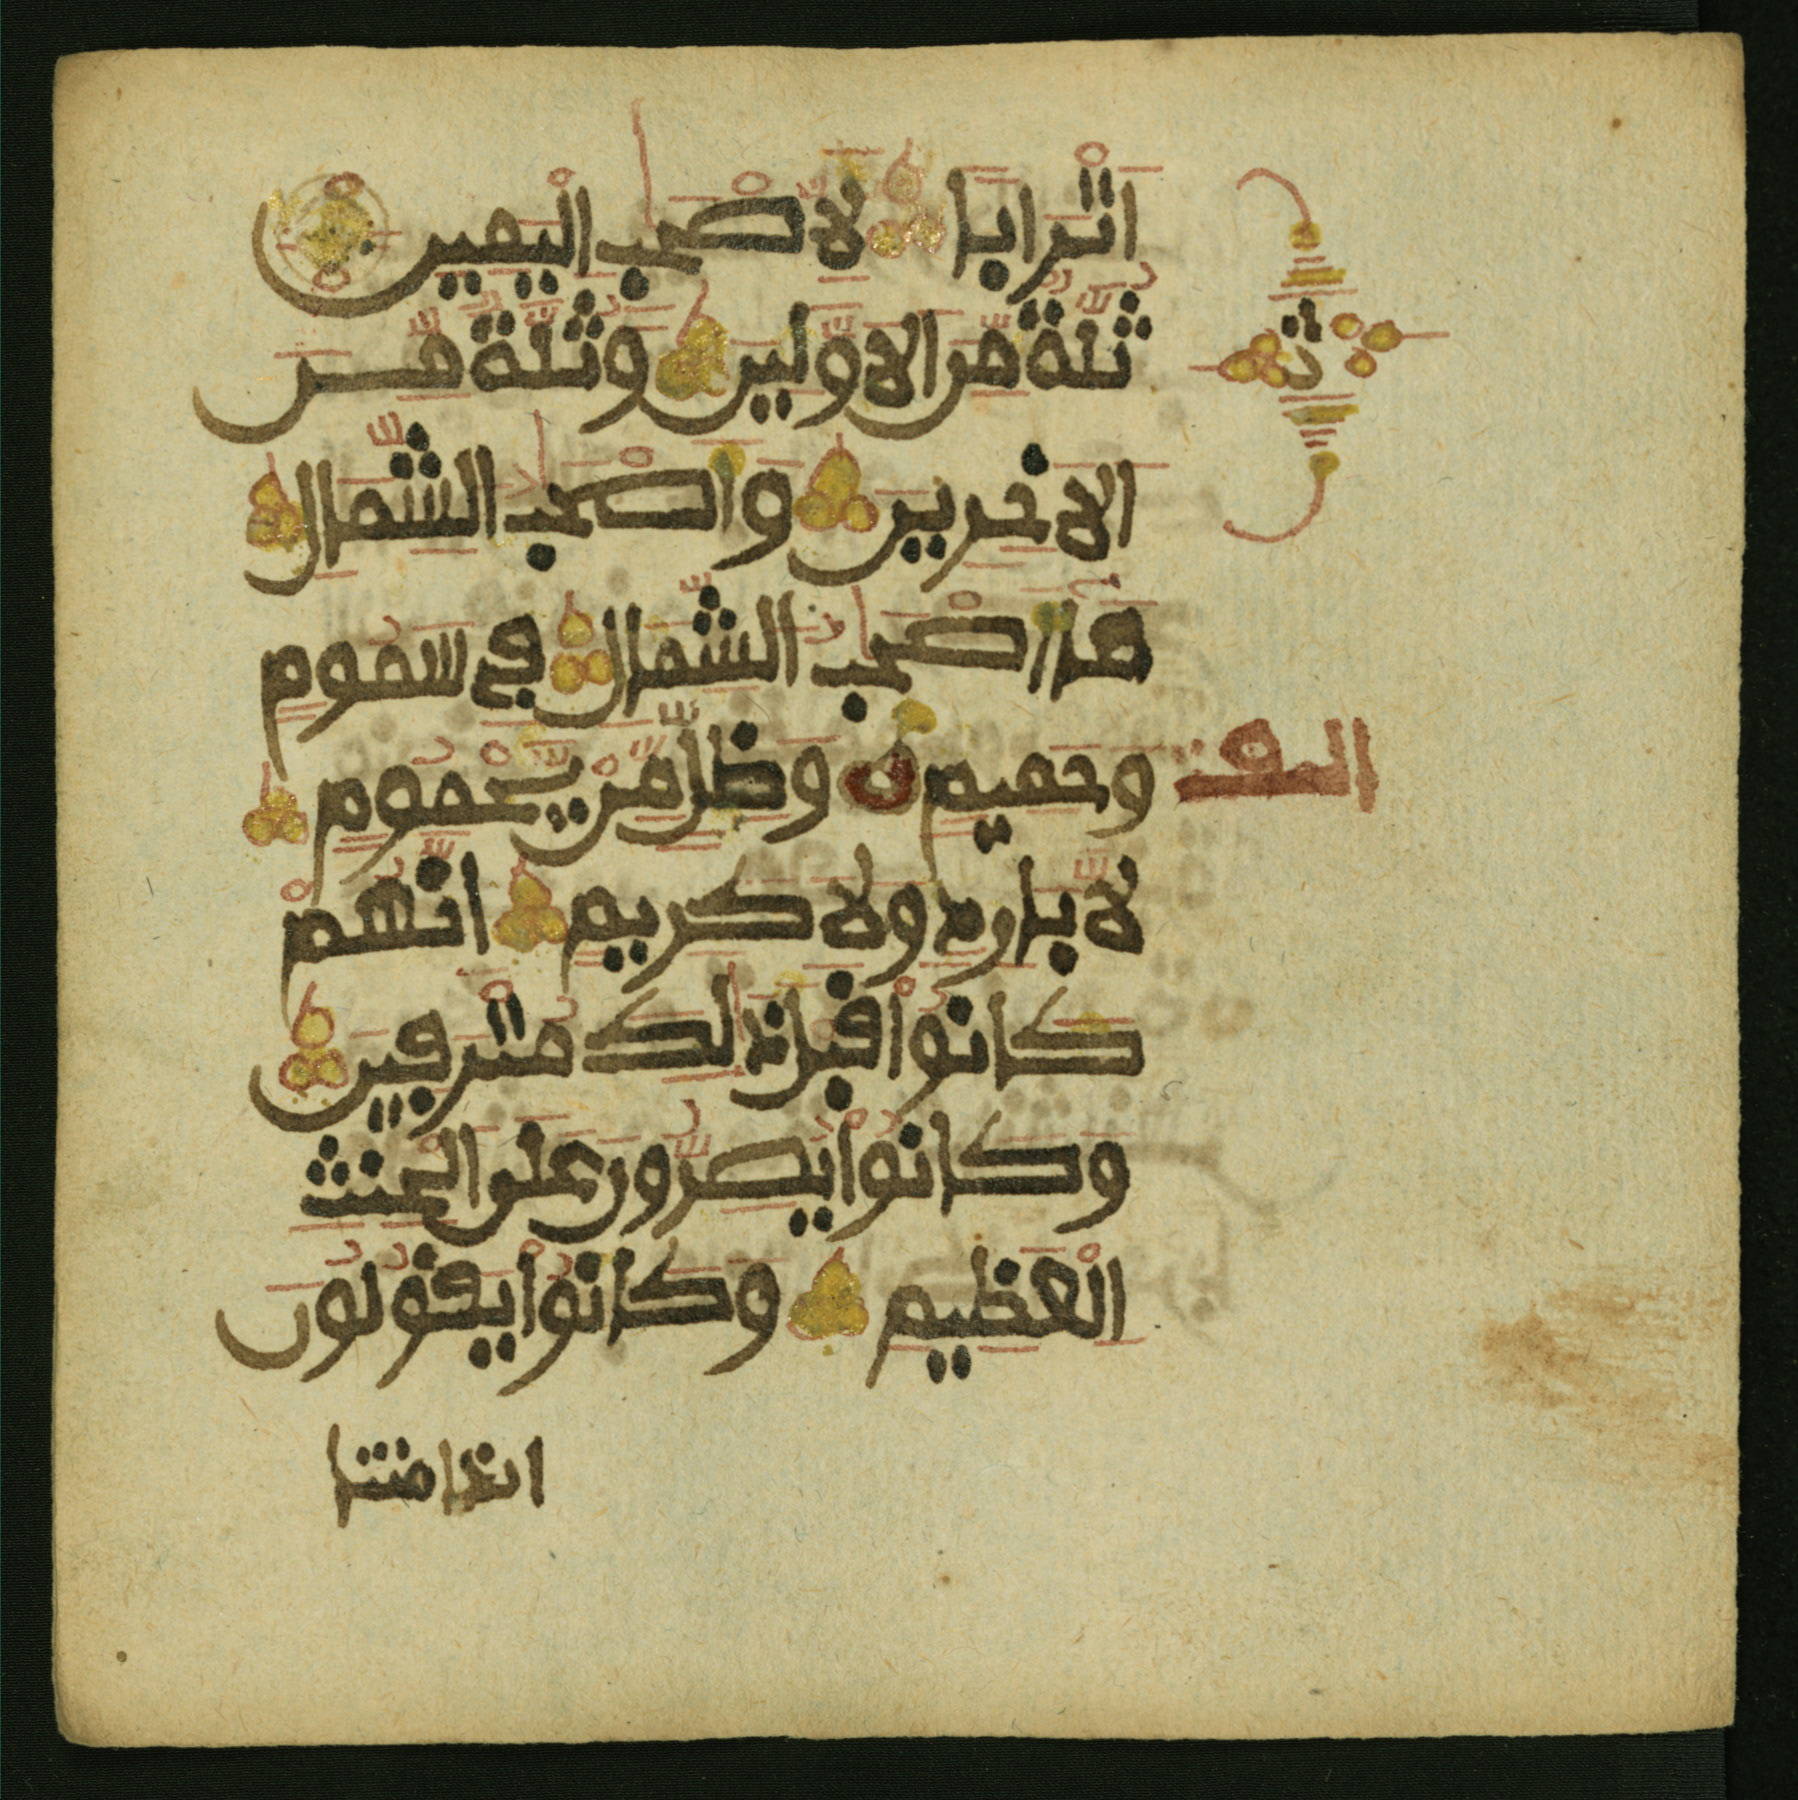 اتْرابا لّاصْحب اليمين
ثلّة مّن الاوّلين وثلّة مّن
الاخرين واصْحب الشّمال
ما اصْحب الشّمال في سموم
وحميم وظلّ مّنْ يّحْموم
النصف
لّا بارد ولا كريم انّهمْ
كانوا قبل ذالك متْرفين
وكانوا يصرّون على الحنث
الْعظيم وكانوا يقولون